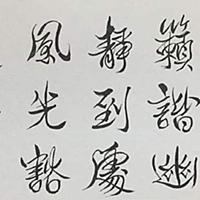 籟諧幽
靜到處
風光豁